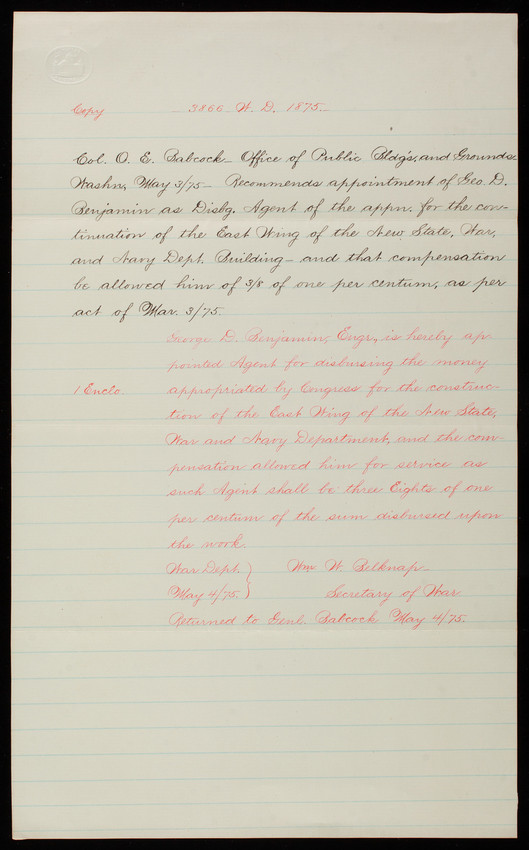 Copy 3866 W. D. 1875.
Col. O. E. Babcock – Office of Public Bldg's, and Grounds
Washn, May 3/75 – Recommends appointment of Geo D.
Benjamin as Disbg. Agent of the appn. for the con-
tinuation of the East Wing of the New State, War,
and Navy Dept. Building – and that compensation
be allowed him of 3/8 of one per centum, as per
act of Mar. 3/75.
George D. Benjamin, Engr, is hereby ap
pointed Agent for disbursing the money
1 Enclo. appropriated by Congress for the construc-
tion of the East Wing of the New State,
War and Navy Department, and the com-
pensation allowed him for service as
such Agent shall be three Eights of one
per centum of the sum disbursed upon
the work.
War Dept. } Wm W. Belknap –
May 4/75. } Secretary of War
Returned to Genl. Babcock May 4/75.